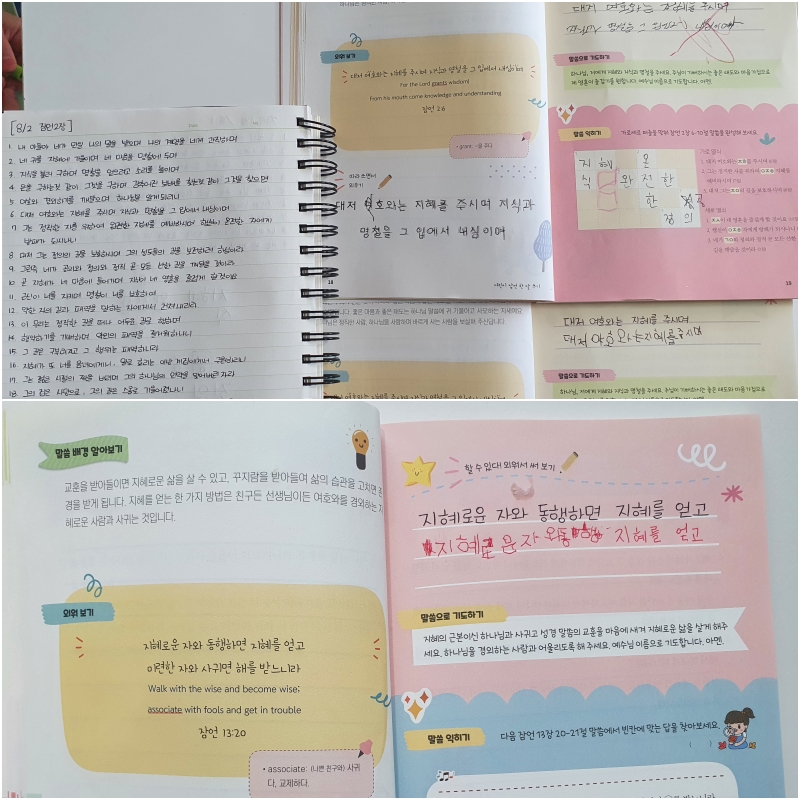 외워 보기
대저 여호와는 지혜를 주시며 지식과 명철을 그 입에서 내심이며
For the Lord grants wisdom!
From his mouth come knowledge and understanding
잠언 2:6
• grant : ~을 주다
따라 쓰면서
외우기
대저 여호와는 지혜를 주시며 지식과
명철을 그 입에서 내심이며
18
대저 여호와는 지혜를 주시며
말씀으로 기도하기
하나님, 저에게 지혜와 지식과 명철을 주세요. 주님이 기뻐하시는 좋은 태도와 마음가짐으로
말씀 익히기
지 혜 온
식 와 진 한
한
정 의
19
[8/2 잠언 2장]
1. 내 아들아 네가 만일 나의 말을 받으며 나의 계명을 네게 간직하며
2. 네 귀를 지혜에 기울이며 네 마음을 명철에 두며
3. 지식을 불러 구하며 명철을 얻으려고 소리를 높이며
4. 은을 구하는 것 같이 그것을 구하며 감추어진 보배를 찾는 것 같이 그것을 찾으면
5. 여호와 경외하기를 깨달으며 하나님을 알게 되리니
6. 대저 여호와는 지혜를 주시며 지식과 명철을 그 입에서 내심이며
7. 그는 정직한 자를 위하여 완전한 지혜를 예비하시며 행실이 온전한 자에게
방패가 되시나니
8. 대저 그는 정의의 길을 보호하시며 그의 성도들의 길을 보전하려 하심이니라
9. 그런즉 네가 공의와 정의와 정직 곧 모든 선한 길을 깨달을 것이라
10. 곧 지혜가 네 마음에 들어가며 지식이 네 영혼을 즐겁게 할 것이요
11. 근신이 너를 지키며 명철이 너를 보호하여
12. 악한 자의 길과 패역을 말하는 자에게서 건져 내리라
13. 이 무리는 정직한 길을 떠나 어두운 길로 행하며
14. 행악하기를 기뻐하며 악인의 패역을 즐거워하나니
15. 그 길은 구부러지고 그 행위는 패역하니라
16. 지혜가 또 너를 음녀에게서, 말로 호리는 이방 계집에게서 구원하리니
17. 그는 젊은 시절의 짝을 버리며 그의 하나님의 언약을 잊어버린 자라
18. 그의 집은 사망으로, 그의 길은 스올로 기울어졌나니
대저 여호와는 지혜를 주시며
대저 여호와는지혜를주시며
말씀으로 기도하기
하나님, 저에게 지혜와 지식과 명철을 주세요. 주님이 기뻐하시는 좋은 태도와 마음가짐으로
말씀 배경 알아보기
교훈을 받아들이면 지혜로운 삶을 살 수 있고, 꾸지람을 받아들여 삶의 습관을 고치면 존
경을 받게 됩니다. 지혜를 얻는 한 가지 방법은 친구든 선생님이든 여호와를 경외하는 지
혜로운 사람과 사귀는 것입니다.
외워 보기
지혜로운 자와 동행하면 지혜를 얻고
미련한 자와 사귀면 해를 받느니라
Walk with the wise and become wise;
associate with fools and get in trouble
잠언 13:20
• associate: (나쁜 친구와) 사귀
다, 교제하다.
할 수 있다! 외워서 써 보기
지혜로운 자와 동행하면 지혜를 얻고
지혜로운자 와동행 지혜를 얻고
말씀으로 기도하기
지혜의 근본이신 하나님과 사귀고 성경 말씀의 교훈을 마음에 새겨 지혜로운 삶을 살게 해주
세요. 하나님을 경외하는 사람과 어울리도록 해 주세요. 예수님 이름으로 기도합니다. 아멘.
말씀 익히기
다음 잠언 13장 20-21절 말씀에서 빈칸에 맞는 답을 찾아보세요.